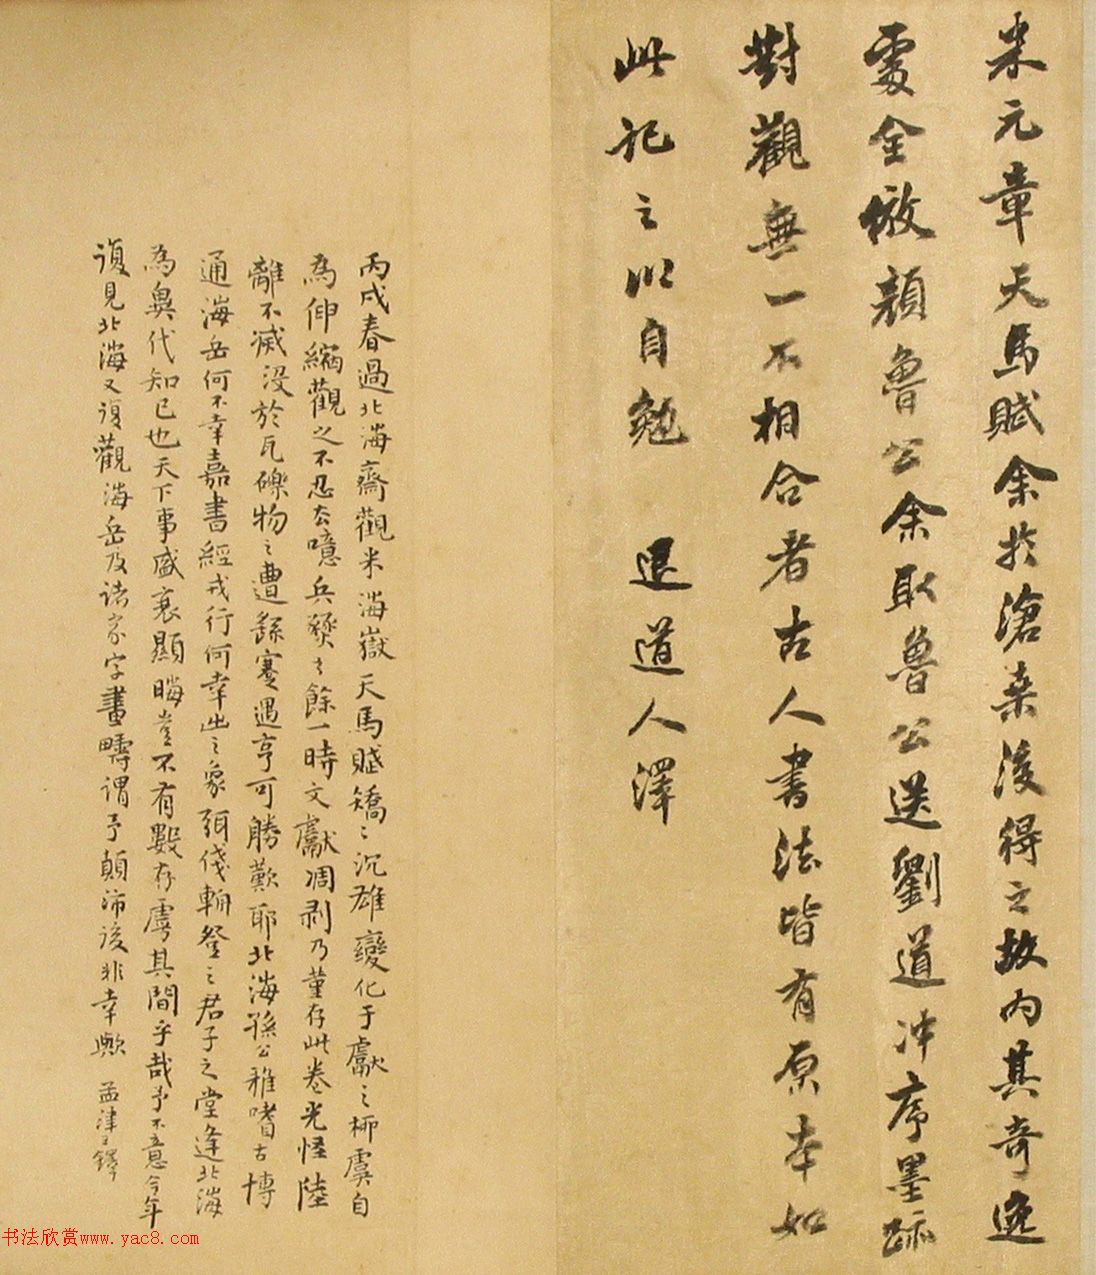 米元章天馬賦余於滄桑後得之故内其奇逸
處全倣顏魯公余取魯公送劉道冲序墨跡
對觀無一不相合者古人書法皆有原本如
此記之以自勉 退道人澤
丙戌春過北海齋觀米海嶽天馬賦矯〻沉雄變化于獻之柳虞自
為伸縮觀之不忍去噫兵燹之餘一時文獻凋剥乃董存此卷光怪陸
離不滅没於瓦礫物之遭繇蹇遇亨可勝歎耶北海孫公雅嗜古博
通海岳何不幸嘉書經戎行何幸出之象弭俴輈登之君子之堂逢北海
為異代知已也天下事盛衰顯晦豈不有數存虖其間乎哉予不意今年
復見北海又復觀海岳及諸家字畫疇謂予顛沛後非幸歟 孟津王鐸
书法欣赏www.yac8.com